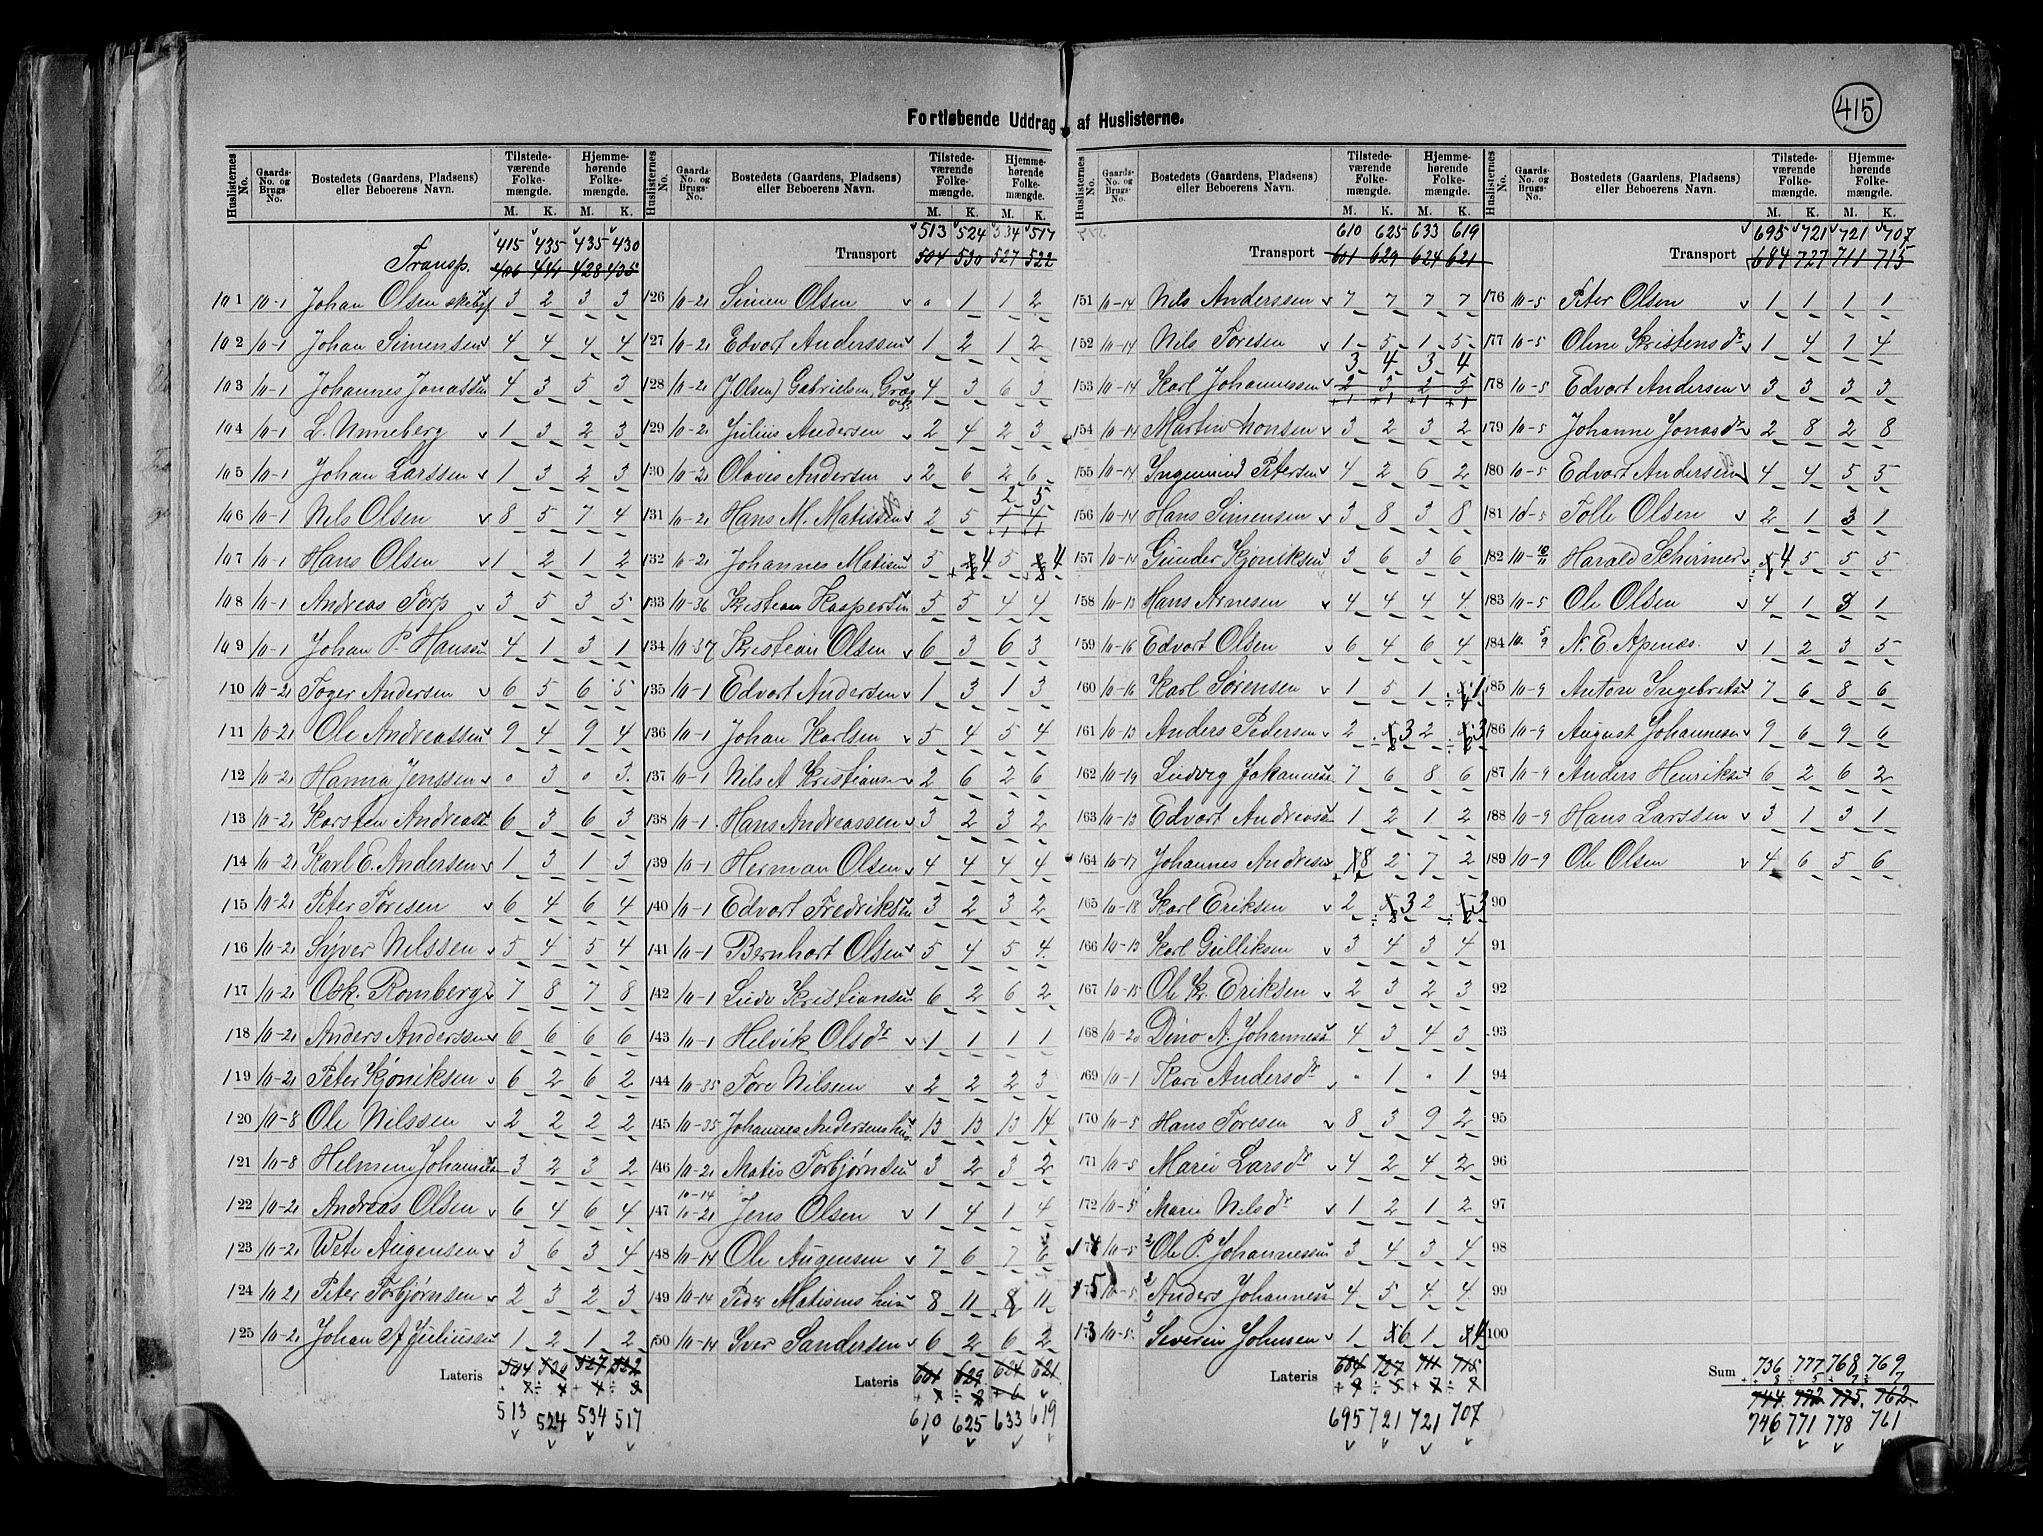 415
Fortløbende Uddrag af Huslisterne.
Huslisternes No. Gaards-No. og Brugs-No. Bostedets (Gaardens, Pladsens) eller Beboerens Navn. Tilstedeværende Folkemængde. Hjemmehørende Folkemængde.
M. K. M. K.
415 435 435 430
Transp. 406 441 428 435
101 10-1 Johan Olsen 3 2 3 3
102 10-1 Johan Simensen 4 4 4 4
103 10-1 Johannes Jonassen 4 3 5 3
104 10-1 L. Unneberg 1 3 2 3
105 10-1 Johan Larssen 1 3 2 3
106 10-1 Nils Olsen 8 5 7 4
107 10-1 Hans Olsen 1 2 1 2
108 10-1 Andreas Torp 3 5 3 5
109 10-1 Johan P. Hanssen 4 1 3 1
110 10-21 Toger Andersen 6 5 6 5
111 10-21 Ole Andreassen 9 4 9 4
112 10-21 Hanna Jenssen 0 3 0 3
113 10-21 Karsten Andreassen 6 3 6 3
114 10-21 Karl E. Andersen 1 3 1 3
115 10-21 Peter Toresen 6 4 6 4
116 10-21 Syver Nilssen 5 4 5 4
117 10-21 Osk. Romberg 7 8 7 8
118 10-21 Anders Anderssen 6 6 6 6
119 10-21 Peter Kjøniksen 6 2 6 2
120 10-8 Ole Nilssen 2 2 2 2
121 10-8 Helmen Johannesen 3 2 3 2
122 10-21 Andreas Olsen 6 4 6 4
123 10-21 Wete Augensen 3 6 3 4
124 10-21 Peter Torbjørnsen 2 3 2 3
125 10-21 Johan A Juliussen 1 2 1 2
Lateris 504 530 527 522
513 524 534 517
Huslisternes No. Gaards-No. og Brugs-No. Bostedets (Gaardens, Pladsens) eller Beboerens Navn. Tilstedeværende Folkemængde. Hjemmehørende Folkemængde.
M. K. M. K.
513 524 534 517
Transport 504 530 527 522
126 10-21 Simen Olsen 0 1 1 2
127 10-21 Edvart Anderssen 1 2 1 2
128 10-21 (J. Olsen) Gabrielsen, 4 3 6 3
129 10-21 Julius Andersen 2 4 2 3
130 10-21 Olavis Andersen 2 6 2 6
2 5
131 10-21 Hans M. Matissen 2 5 1 4
132 10-21 Johannes Matisen 5 4 5 4
133 10-36 Kristian Kaspersen 5 5 4 4
134 10-37 Kristian Olsen 6 3 6 3
135 10-1 Edvart Andersen 1 3 1 3
136 10-1 Johan Karlsen 5 4 5 4
137 10-1 Nils A Kristiansen 2 6 2 6
138 10-1 Hans Andreassen 3 2 3 2
139 10-1 Herman Olsen 4 4 4 4
140 10-1 Edvart Fredriksen 3 2 3 2
141 10-1 Bernhart Olsen 5 4 5 4
142 10-1 Kristiansen 6 2 6 2
143 10-1 Helvik Olsdr 1 1 1 1
144 10-35 Tore Nilsen 2 2 2 3
145 10-35 Johannes Andersens hus 13 13 13 14
146 10-21 Matis Torbjørnsen 3 2 3 2
10-14
147 10-21 Jens Olsen 1 4 1 4
148 10-14 Ole Augensen 7 6 7 6
149 10-14 Peder Matisens hus 8 11 8 11
150 10-14 Iver Sandersen 6 2 6 2
Lateris 601 629 624 621
610 625 633 619
Huslisternes No. Gaards-No. og Brugs-No. Bostedets (Gaardens, Pladsens) eller Beboerens Navn. Tilstedeværende Folkemængde. Hjemmehørende Folkemængde.
M. K. M. K.
610 625 633 619
Transport 601 629 624 621
151 10-14 Nils Anderssen 7 7 7 7
152 10-14 Nils Toresen 1 5 1 5
3 4 3 4
153 10-14 Karl Johannessen 2 3 2 5
154 10-14 Martin Monsen 3 2 3 2
155 10-14 Ingemund Petersen 4 2 6 2
156 10-14 Hans Simensen 3 8 3 8
157 10-14 Gunder Kjøniksen 3 6 3 6
158 10-13 Hans Arnesen 4 4 4 4
159 10-16 Edvart Olsen 6 4 6 4
160 10-16 Karl Sørensen 1 5 1 1
161 10-13 Anders Pedersen 2 3 2 3
162 10-19 Ludvig Johannessen 7 6 8 6
163 10-13 Edvart Andreassen 1 2 1 2
164 10-17 Johannes Andresen 8 2 7 2
165 10-18 Karl Eriksen 2 3 2 3
166 10-13 Karl Gulliksen 3 4 3 4
167 10-15 Ole Kr. Eriksen 2 3 2 3
168 10-20 Dino A. Johannessen 4 3 4 3
169 10-1 Kari Andersdr " 1 " 1
170 10-5 Hans Toresen 8 3 9 2
171 10-5 Marie Larsdr 4 2 4 2
172 10-5 Marie Nilsdr 1 2 1 2
174 10-5 Ole P. Johannessen 3 4 3 4
175 10-5 Anders Johannessen 4 5 4 4
173 10-5 Severin Johnsen 1 6 1 4
Lateris 684 727 711 715
+9 ÷5 +8 ÷8
695 721 721 707
Huslisternes No. Gaards-No. og Brugs-No. Bostedets (Gaardens, Pladsens) eller Beboerens Navn. Tilstedeværende Folkemængde. Hjemmehørende Folkemængde.
M. K. M. K.
695 721 721 707
Transport 684 727 711 715
176 10-5 Peter Olsen 1 1 1 1
177 10-5 Oline Kristensdr 1 4 1 4
178 10-5 Edvart Andersen 3 3 3 3
179 10-5 Johanne Jonasdr 2 8 2 8
180 10-5 Edvart Andersen 4 4 5 5
181 10-5 Tolle Olsen 2 1 3 1
182 10-10/11 Harald Schirmer 4 5 5 5
183 10-5 Ole Olsen 4 1 3 1
184 10-5/9 N. E. Apenæs. 1 2 3 5
185 10-9 Anton Ingebretsen 7 6 8 6
186 10-9 August Johannesen 9 6 9 6
187 10-9 Anders Henriksen 6 2 6 2
188 10-9 Hans Larssen 3 1 3 1
189 10-9 Ole Olsen 4 6 5 6
90
91
92
93
94
95
96
97
98
99
100
Sum 736 777 768 769
+8 ÷5 +7 ÷7
744 772 775 762
746 771 778 761